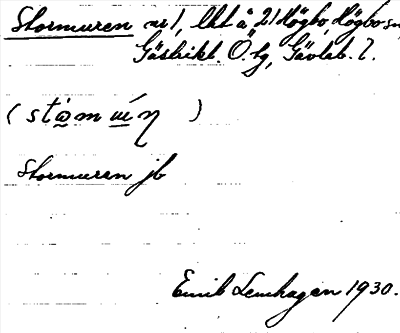 Stormuren nr 1, lht å 21 Högbo, Högbo sn,
Gästrikl. Ö. tg, Gävleb. l.
(stå̀m ṁŋ )
Stormuren jb
Emil Lemhagen 1930.